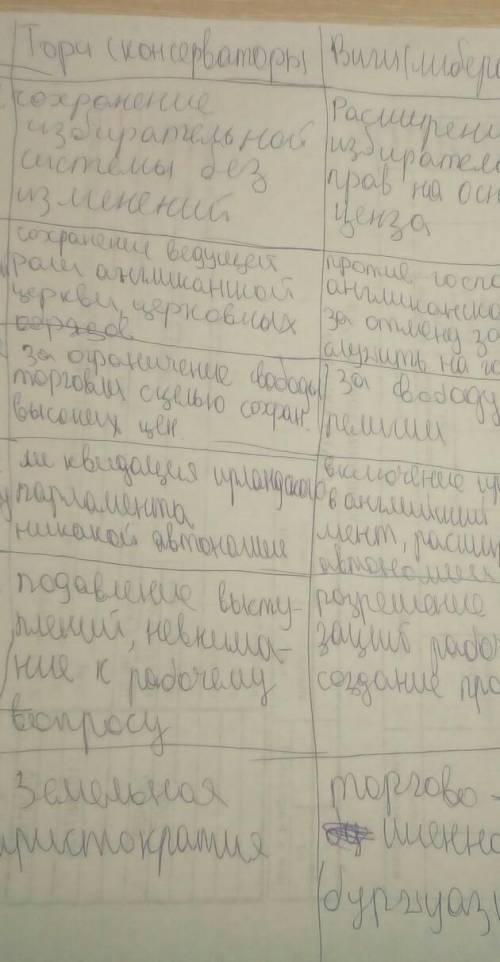 Тори (консерваторы) Виги (либера
сохранение
избирательной
системы без
изменений
Расширени
избирател
прав на осн
ценза
сохранение ведущей
роли англиканской
церкви, церковных
обрядов
против госпо
английканско
за отмену за
служить на го
за ограничение свободы
торговли с целью сохран.
высоких цен
за свободу
религии
ликвидация ирландского
парламента
никакой автономии
включение ир
в английский
мент, расшир
автономии
подавление высту-
плений, невнима-
ние к рабочему
вопросу
розрешение
заций рабоч
создание про
Земельная
аристократия
торгово -
именно
(буржуази